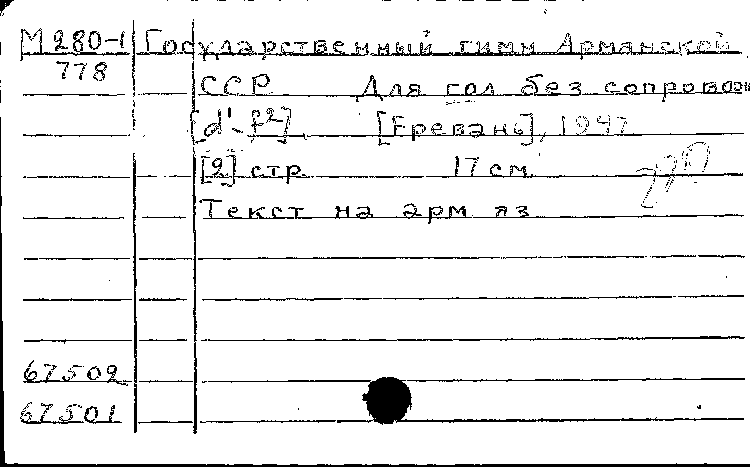 М280-1 Государственный гимн Армянской
778 ССР Для гол без сопровож
[d¹-f²]. [Ереван], 1947
[2] стр 17 см.
Текст на арм яз
67502
67501